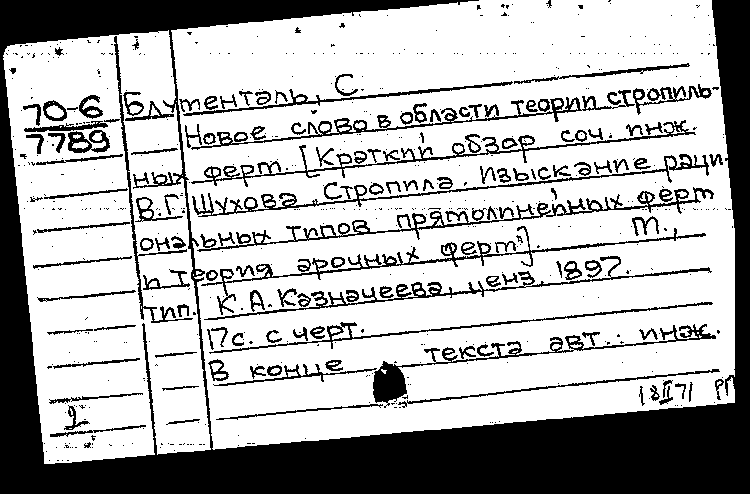 70-6
7789
Блументаль, С.
Новое слово в области теории стропиль-
ных ферм. [Краткий обзор соч. инж.
В.Г. Шухова "Стропила. Изыскание раци-
ональных типов прямолинейных ферм
и теория арочных ферм"]. М.,
тип. К.А. Казначеева, ценз. 1897.
17с. с черт.
В конце текста авт.: инж.
2
18II71